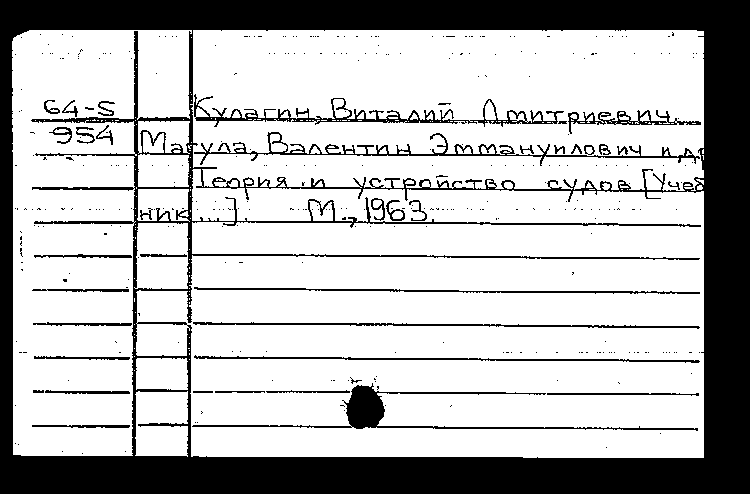 64-5 Кулагин, Виталий Дмитриевич.
954 Магула, Валентин Эммануилович и др
Теория и устройство судов [Учеб
ник...]. М., 1963.